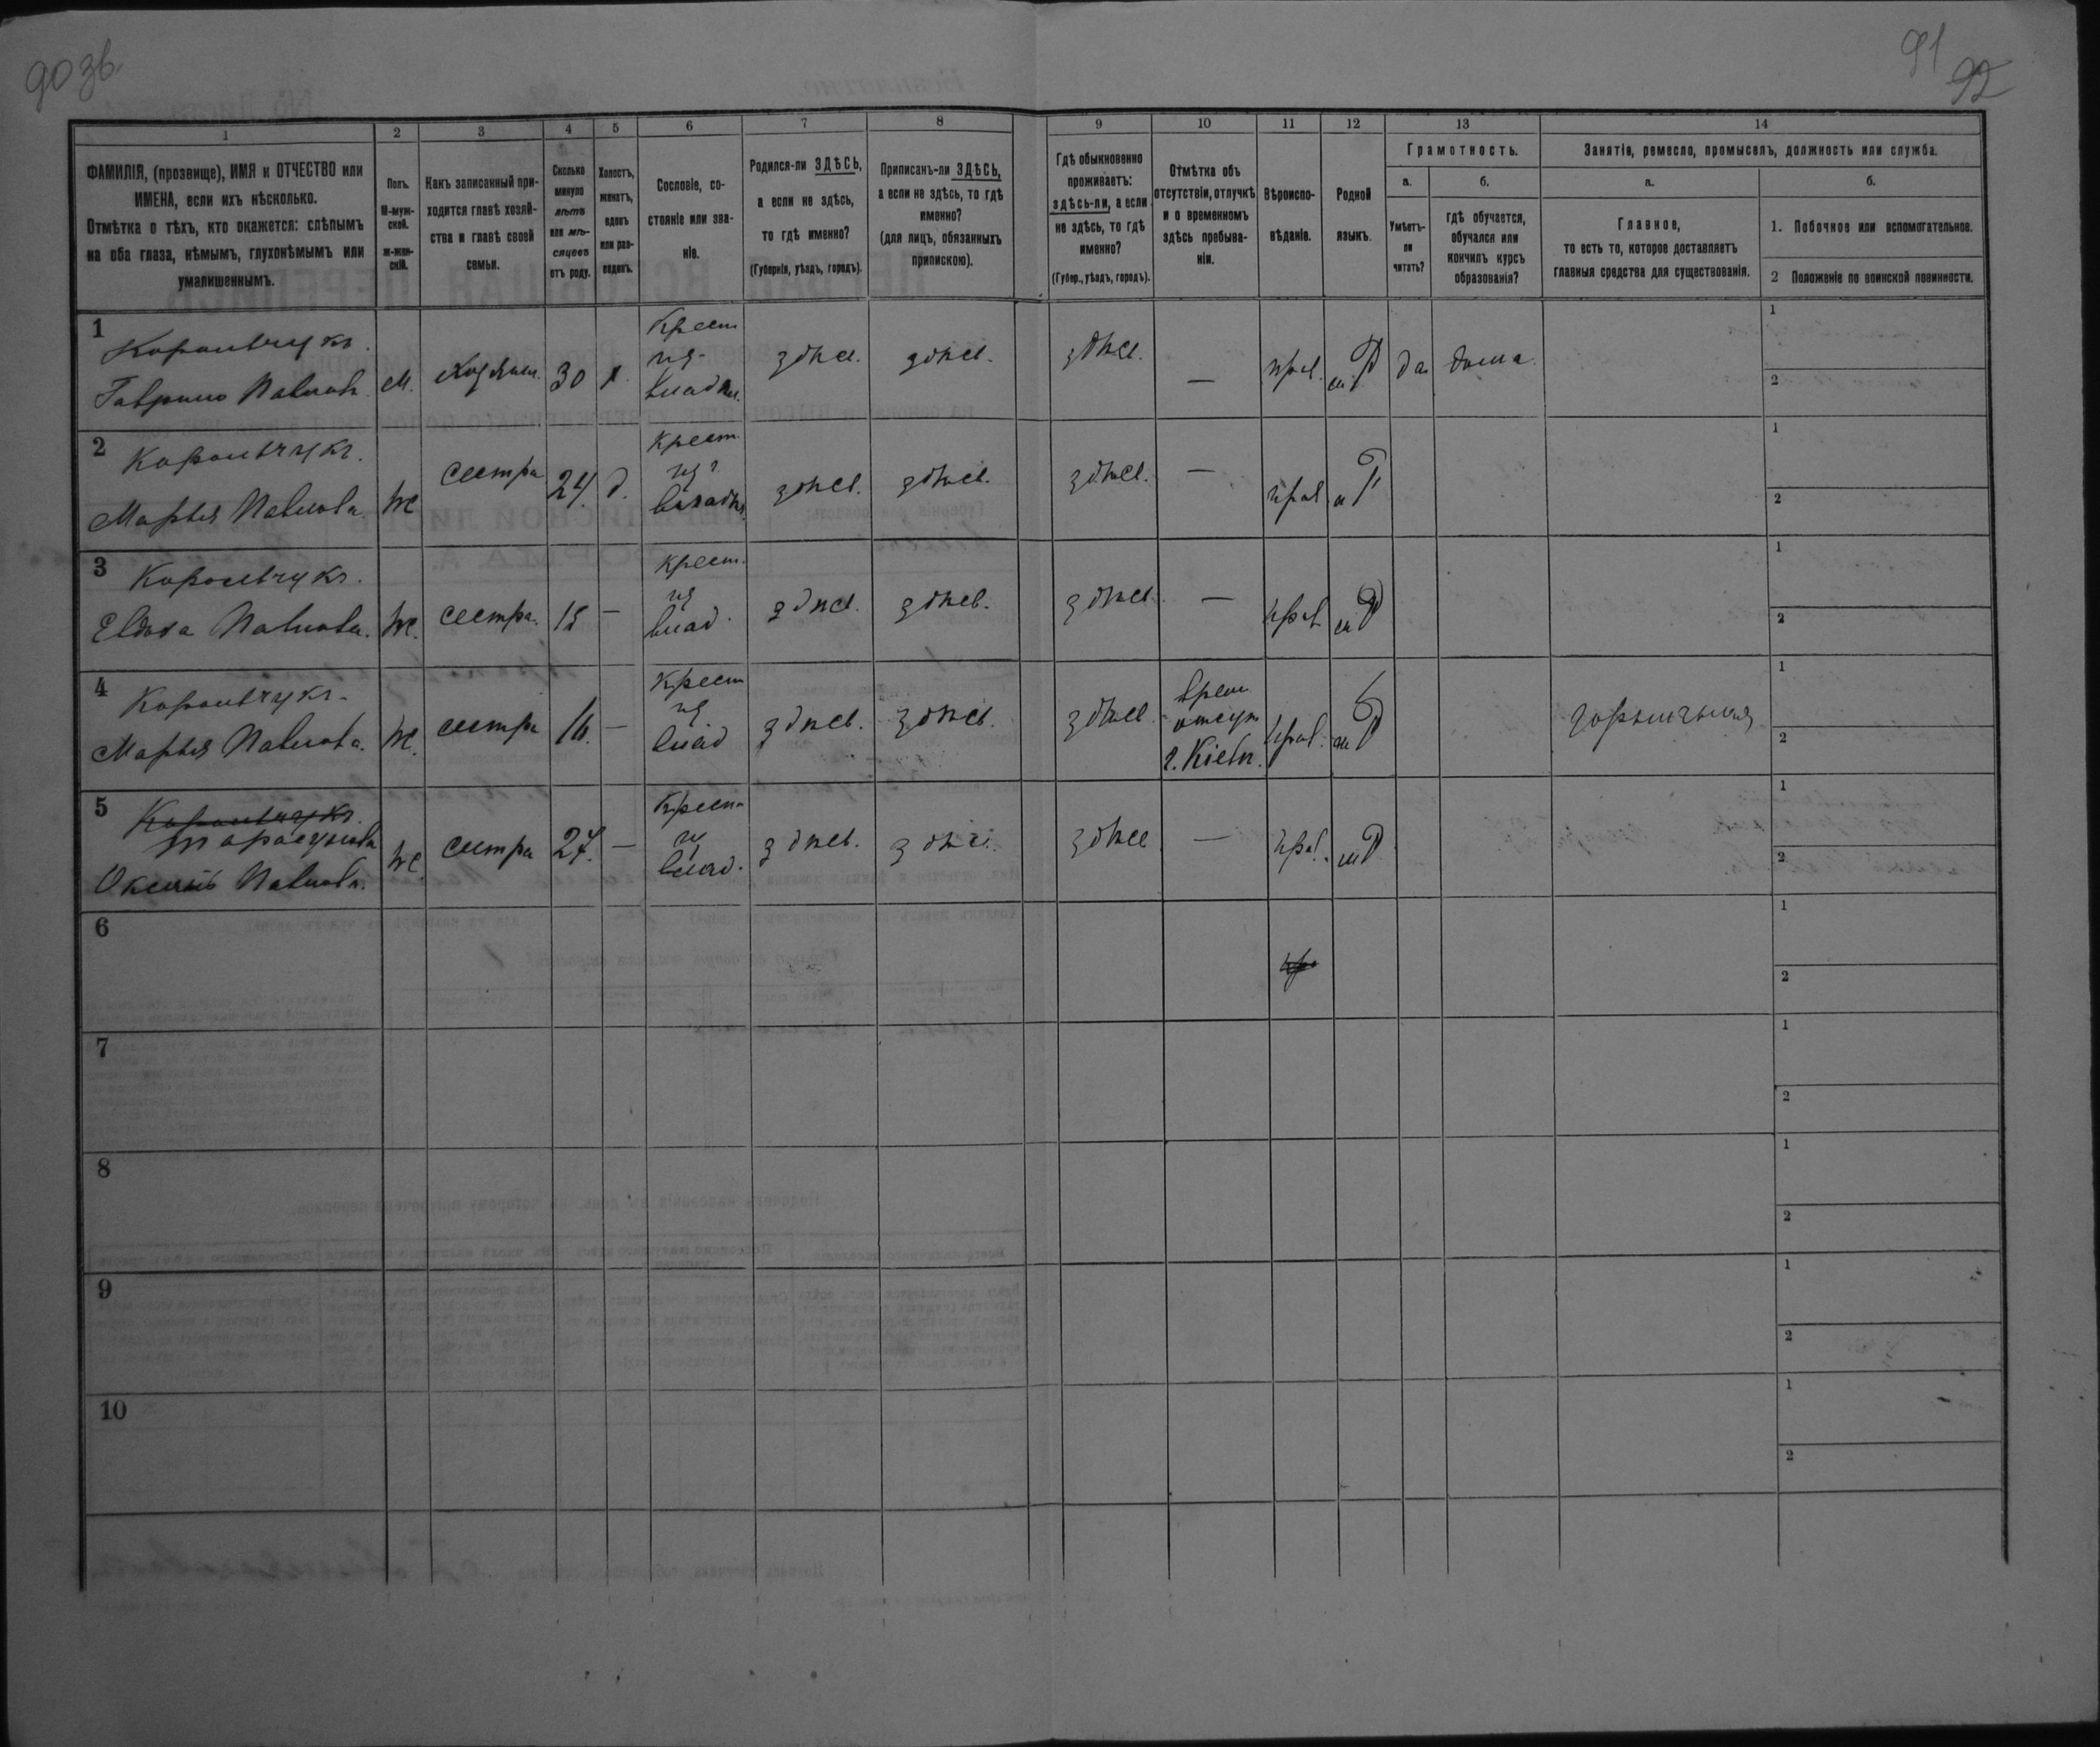 90 зв.
91
92
1
2
3
4
5
6
7
8
9
10
11
12
13
14
ФАМИЛІЯ, (прозвище), ИМЯ и ОТЧЕСТВО или
ИМЕНА, если ихъ нѣсколько.
Отмѣтка о тѣхъ, кто окажется: слѣпымъ
на оба глаза, нѣмымъ, глухонѣмымъ или
умалишеннымъ.
Полъ.
М-муж-
ской.
ж-жен-
скій.
Какъ записанный при-
ходится главѣ хозяй-
ства и главѣ своей
семьи.
Сколько
минуло
лѣтъ
или мѣ-
сяцевъ
отъ роду.
Холостъ,
женатъ,
вдовъ
или раз-
веденъ.
Сословіе, со-
стояніе или зва-
ніе.
Родился-ли ЗДѢСЬ,
а если не здѣсь,
то гдѣ именно?
(Губернія, уѣздъ, городъ).
Приписанъ-ли ЗДѢСЬ,
а если не здѣсь, то гдѣ
именно?
(для лицъ, обязанныхъ
припискою).
Гдѣ обыкновенно
проживаетъ:
здѣсь-ли, а если
не здѣсь, то гдѣ
именно?
(Губер., уѣздъ, городъ).
Отмѣтка объ
отсутствіи, отлучкѣ
и о временномъ
здѣсь пребыва-
ніи.
Вѣроиспо-
вѣданіе.
Родной
языкъ.
Грамотность.
а.
Умѣетъ-
ли
читать?
б.
гдѣ обучается,
обучался или
кончилъ курсъ
образованія?
Занятіе, ремесло, промыселъ, должность или служба.
а.
Главное,
то есть то, которое доставляетъ
главныя средства для существованія.
б.
1. Побочное или вспомогательное.
2 Положеніе по воинской повинности.
1
Корольчукъ.
Гаврило Павлов.
М.
Хозяин.
30
х.
Крест
из
владѣл.
здѣсь.
здѣсь.
здѣсь.
—
прав.
да
дома
1
2
2
Корольчукъ.
Марья Павлова.
ж
сестра
24
д.
Крест.
из
владѣл.
здѣсь.
здѣсь.
здѣсь.
—
прав
1
2
3
Корольчукъ.
Евдоха Павлова.
ж.
сестра.
18
—
Крест.
из
влад.
здѣсь.
здѣсь.
здѣсь
—
прав
1
2
4
Корольчукъ.
Марья Павлова.
ж.
сестра
16.
—
Крест
из
влад
здѣсь.
здѣсь.
здѣсь
врем
отсут
г. Кіевъ.
прав.
горничная
1
2
5
Корольчукъ.
Оксинья Павлова.
ж.
сестра
27.
—
Крест
из
влад.
здѣсь.
здѣсь.
здѣсь
—
прав.
1
2
6
1
2
7
1
2
8
1
2
9
1
2
10
1
2